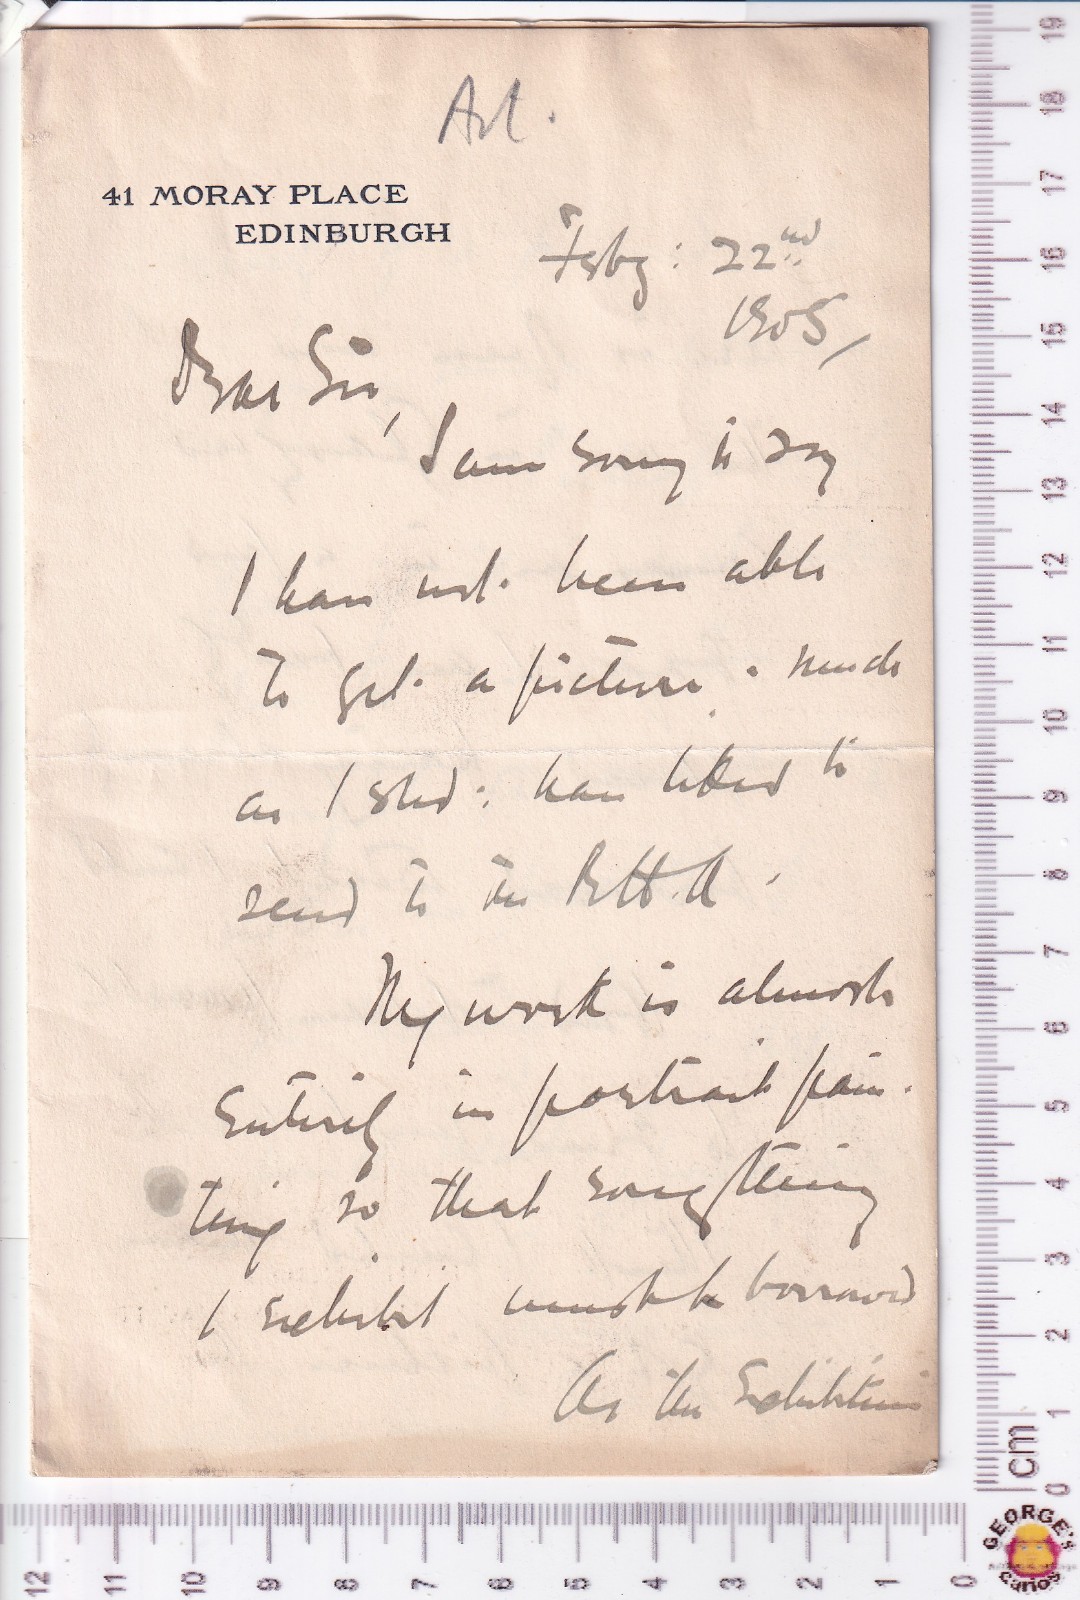 Art.
41 MORAY PLACE
EDINBURGH
Feby: 22nd
1905,
Dear Sir,
I am sorry to say
I have not been able
to get a picture, much
as I shd: have liked to
send to the R.H.A.
My work is almost
entirely in portrait pain-
ting so that anything
I exhibit must be borrowed
As the Exhibition
19
18
17
16
15
14
13
12
11
10
9
8
7
6
5
4
3
2
1
0
cm
12 11 10 9 8 7 6 5 4 3 2 1 0
GEORGE's
Curios